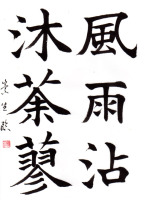 風雨沾
沐荼蓼